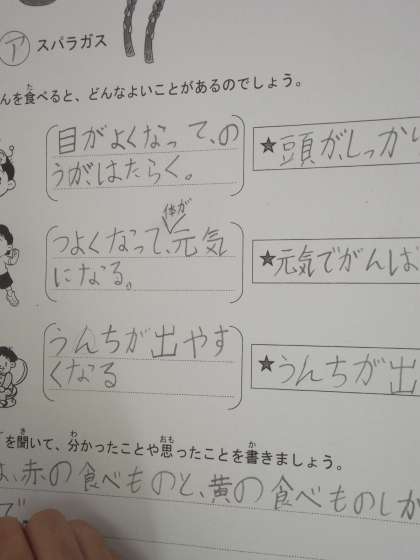 ア スパラガス
んを食べると、どんなよいことがあるのでしょう。
目がよくなって、の
うが、はたらく。
★頭が、しっかり
体が
つよくなって、元気
になる。
★元気でがんば
うんちが出やす
くなる
★うんちが出
を聞いて、分かったことや思ったことを書きましょう。
は、赤の食べものと、黄の食べものしか